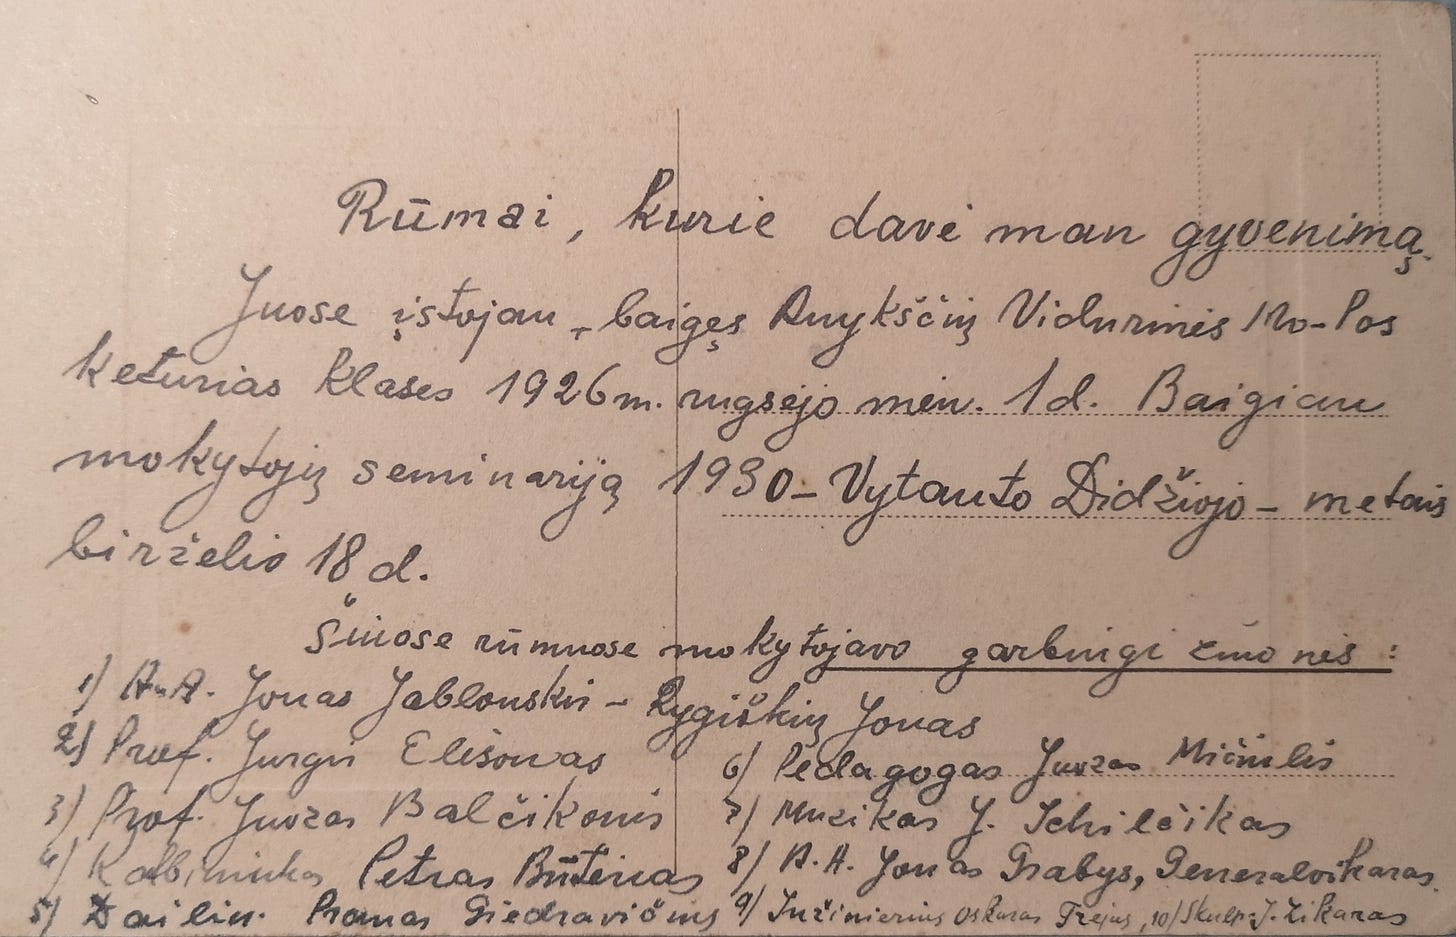 Rūmai, kurie davė man gyvenimą.
Juose įstojau, baigęs Anykščių Vidurinės Mo-los
keturias klases 1926 m. rugsėjo mėn. 1 d. Baigiau
mokytojų seminariją 1930 – Vytauto Didžiojo – metais
birželio 18 d.
Šiuose rūmuose mokytojavo garbingi žmonės:
1) A.A. Jonas Jablonskis – Rygiškių Jonas
2) Prof. Jurgis Elisonas
3) Prof. Juozas Balčikonis
4) Kalbininkas Petras Būtėnas
5) Dailin. Pranas Giedravičius
6) Pedagogas Juozas Mičiulis
7) Muzikas J.
8) A.A. Jonas Grabys, Generalvikaras.
9) Inžinierius Oskaras 10) Skulp. J. Zikaras